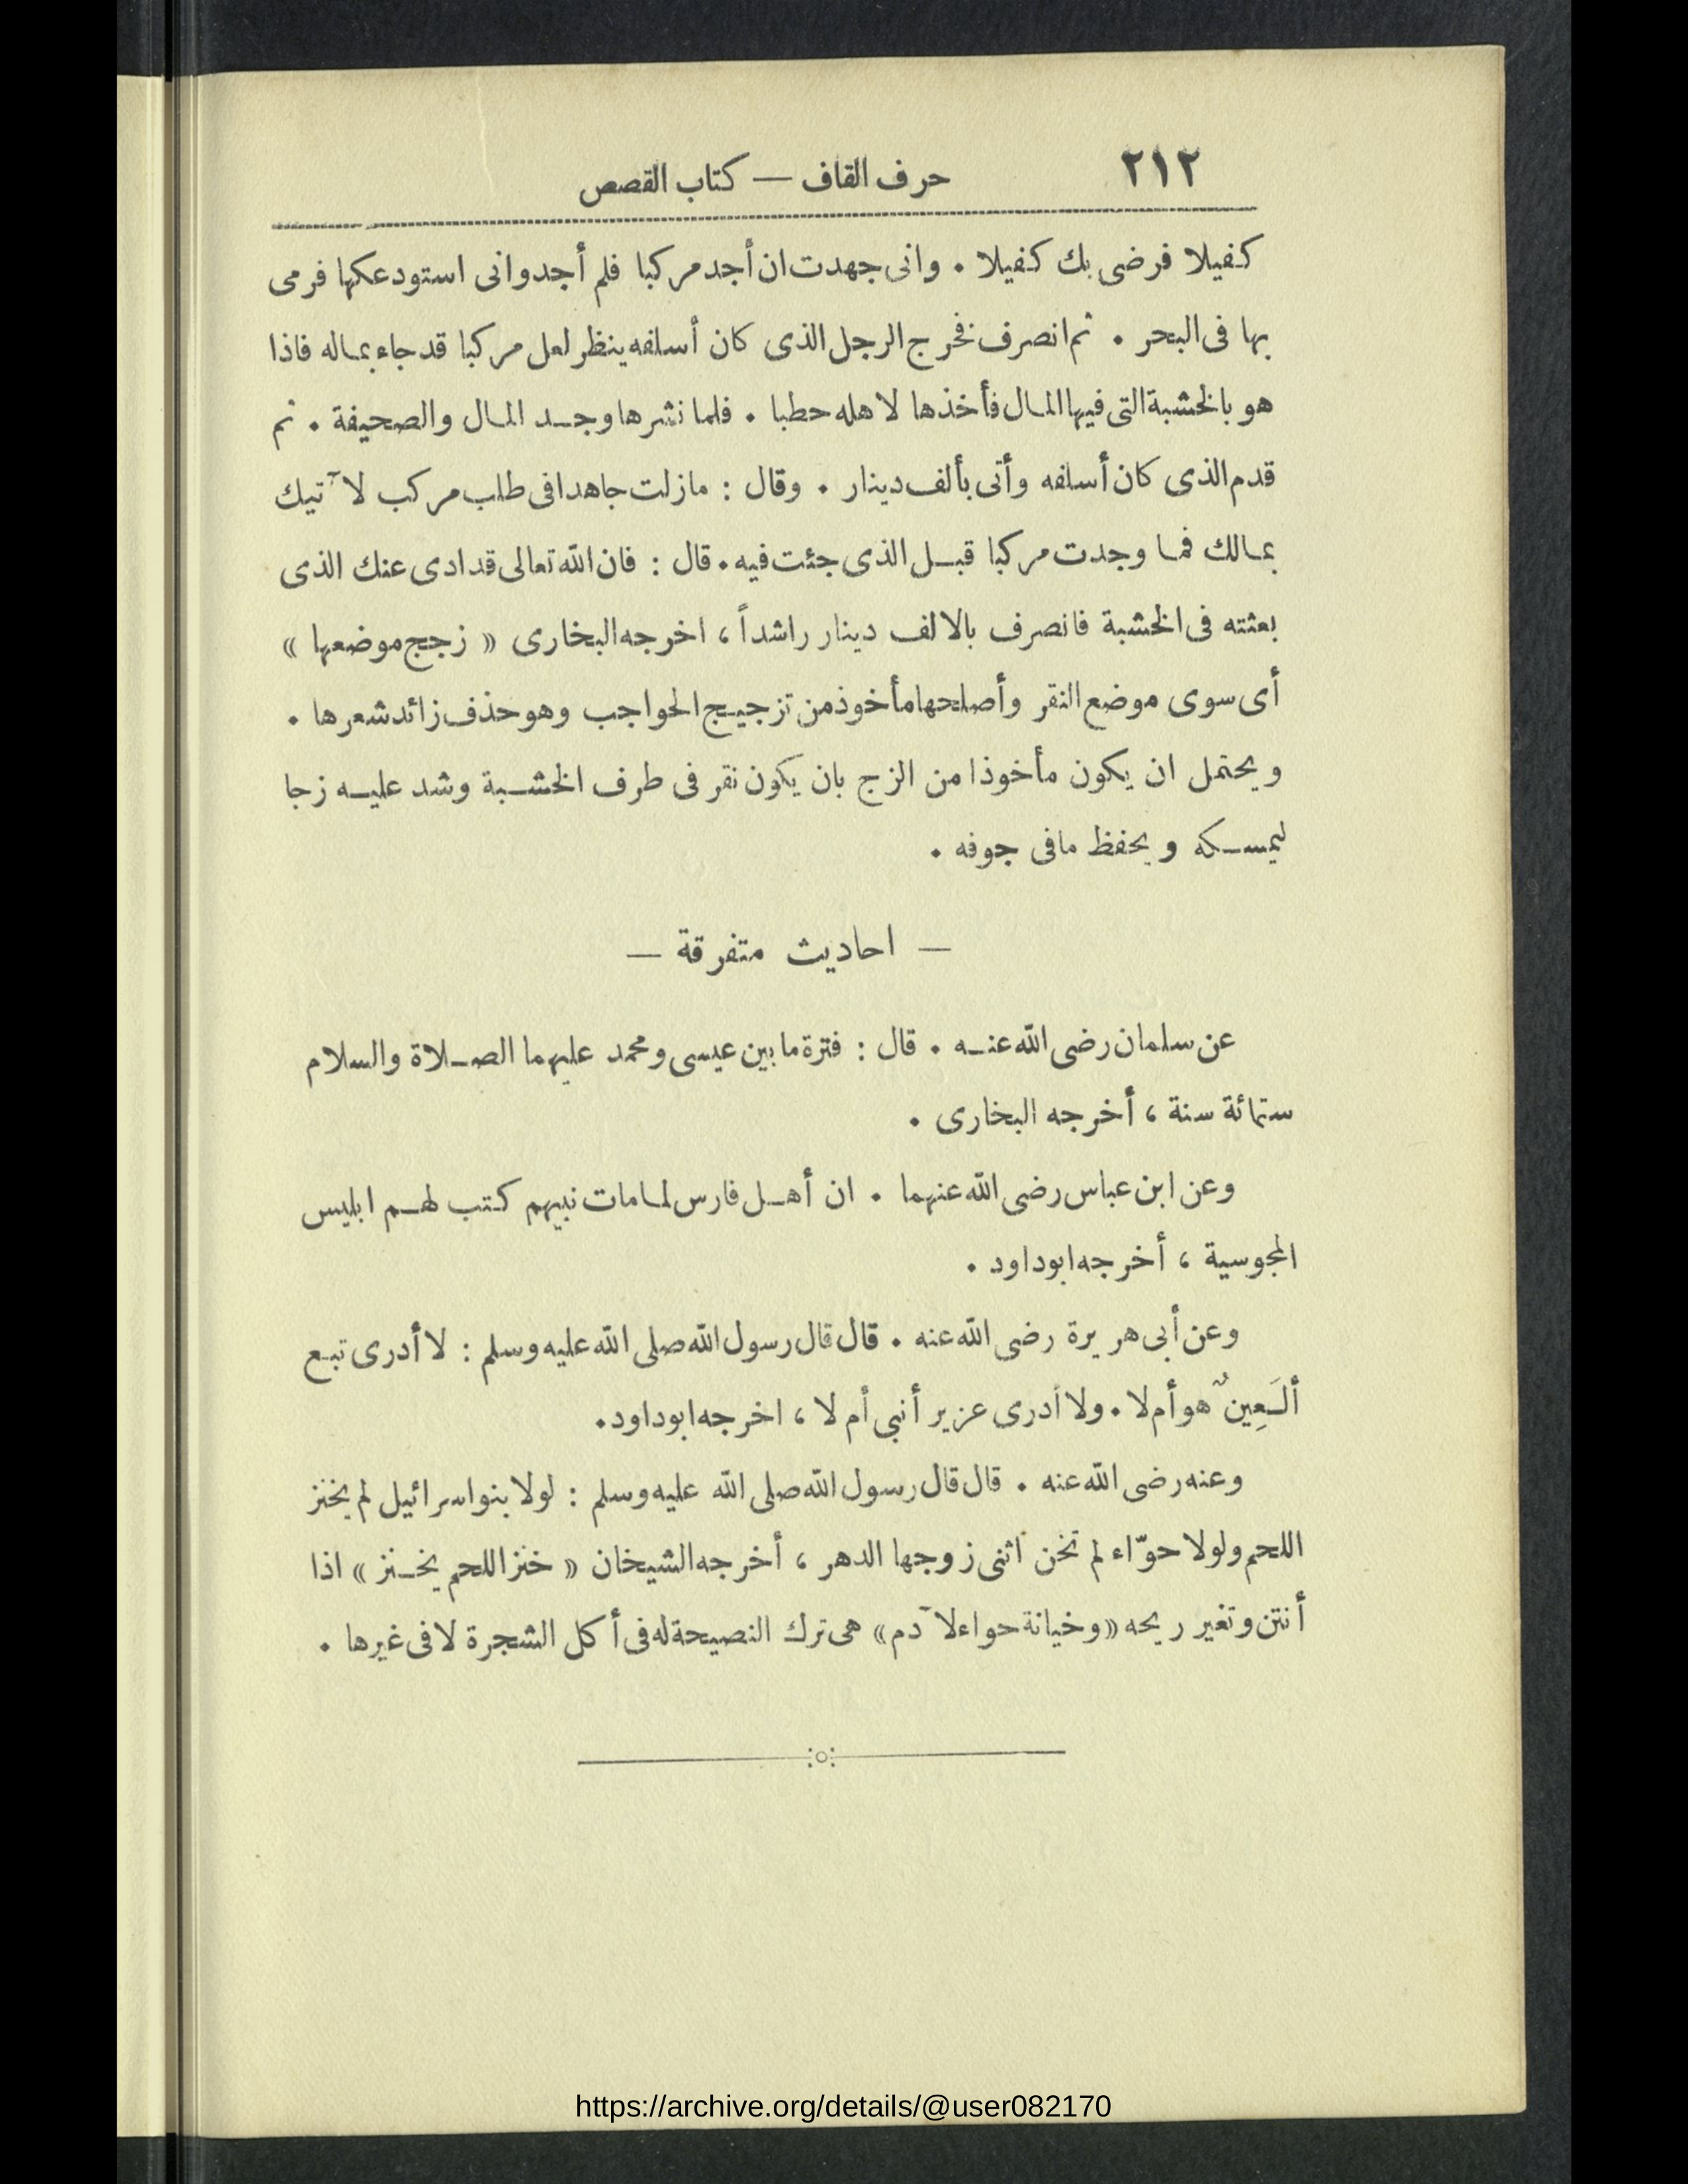 ٢١٢
حرف القاف — كتاب القصص
كفيلا فرضى بك كفيلا . وانى جهدت ان أجد مركبا فلم أجد وانى استودعكها فرمى
بها فى البحر . ثم انصرف فخرج الرجل الذى كان أسلفه ينظر لعل مركبا قد جاء بماله فاذا
هو بالخشبة التى فيها المال فأخذها لاهله حطبا . فلما نشرها وجد المال والصحيفة . ثم
قدم الذى كان أسلفه وأتى بألف دينار . وقال : مازلت جاهدا فى طلب مركب لآتيك
بمالك فما وجدت مركبا قبل الذى جئت فيه . قال : فان الله تعالى قد ادى عنك الذى
بعثته فى الخشبة فانصرف بالالف دينار راشداً ، اخرجه البخارى « زجج موضعها »
أى سوى موضع النقر وأصلحها مأخوذ من تزجيج الحواجب وهو حذف زائد شعرها .
ويحتمل ان يكون مأخوذا من الزج بان يكون نقر فى طرف الخشبة وشد عليه زجا
ليمسكه ويحفظ مافى جوفه .
— احاديث متفرقة —
عن سلمان رضى الله عنه . قال : فترة ما بين عيسى ومحمد عليهما الصلاة والسلام
ستمائة سنة ، أخرجه البخارى .
وعن ابن عباس رضى الله عنهما . ان أهل فارس لما مات نبيهم كتب لهم ابليس
المجوسية ، أخرجه ابوداود .
وعن أبى هريرة رضى الله عنه . قال قال رسول الله صلى الله عليه وسلم : لا أدرى تبع
ألَعِينٌ هو أم لا . ولا أدرى عزير أنبى أم لا ، اخرجه ابوداود .
وعنه رضى الله عنه . قال قال رسول الله صلى الله عليه وسلم : لولا بنو اسرائيل لم يخنز
اللحم ولولا حوّاء لم تخن اثنى زوجها الدهر ، أخرجه الشيخان « خنز اللحم يخنز » اذا
أنتن وتغير ريحه « وخيانة حواء لآدم » هى ترك النصيحة له فى أكل الشجرة لا فى غيرها .
https://archive.org/details/@user082170